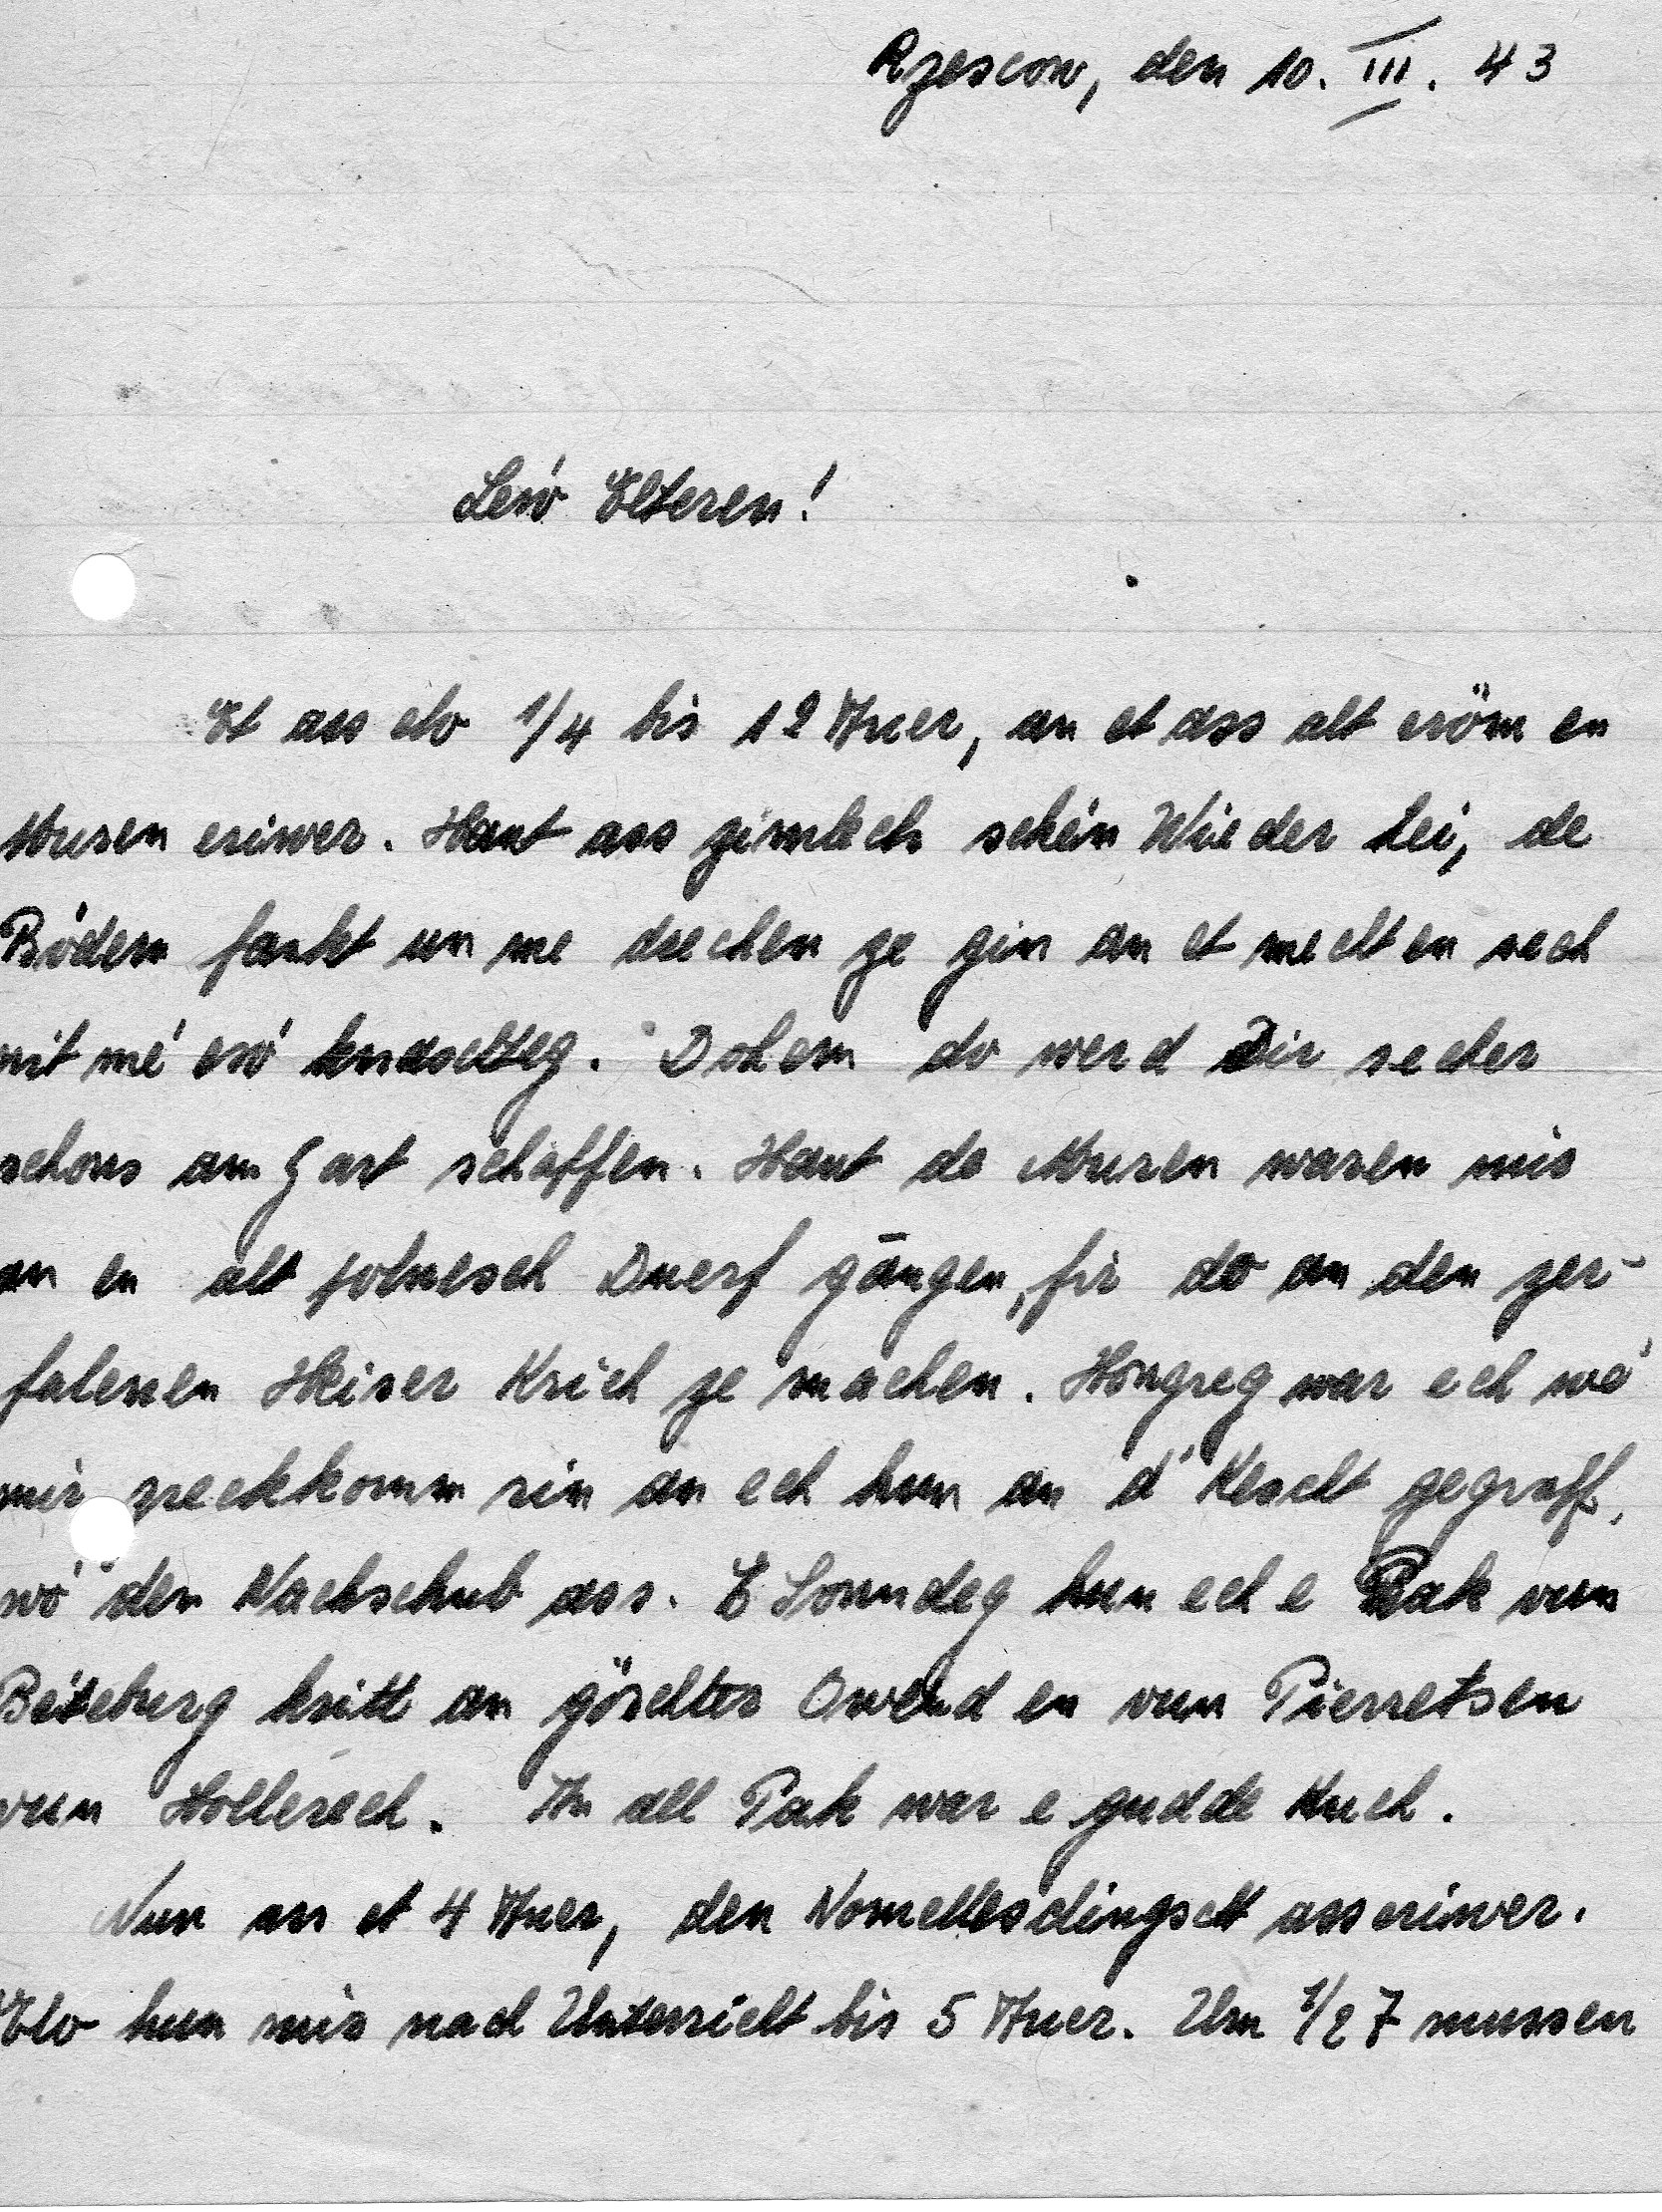 Rzescow, den 10. III. 43
Leiw Elteren!
Et ass elo 1/4 bis 12 Auer, an et ass alt eröm en
Muren eriwer. Haut ass zimlech schéin Wieder hei, de
Bódem fänkt un me drechen ze gin an et mecht en sech
nit mé esó knaschteg. Dohem do werd Dir secher
schons am Gart schaffen. Haut de Muren waren mir
an en alt polnesch Duerf gāngen, fir do an den zer-
falenen Heiser Krich ze machen. Hongreg war ech wé
mir zreckkomm sin an ech hun an d'Kescht gegraff,
wó den Nachschub ass. E Sonndeg hun ech e Pak vun
Béteburg kritt an göschter Owend en vun Pierretsen
vun Hollerech. An all Pak war e gudde Kuch.
Nun as et 4 Auer, den Nomettesdingscht ass eriwer.
Elo hun mir nach Unterricht bis 5 Auer. Um 1/2 7 mussen